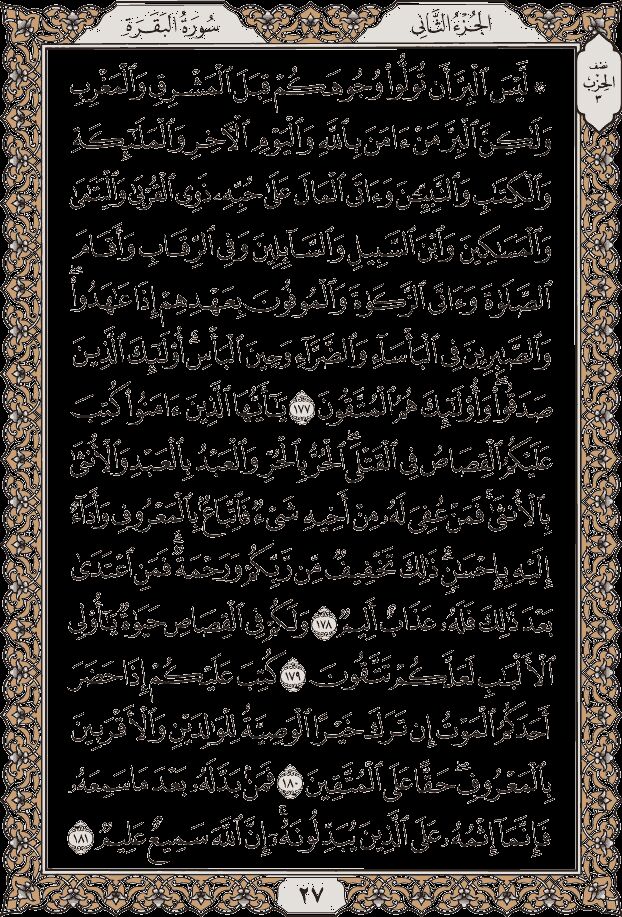 سُورَةُ البَقَرَةِ
الجُزْءُ الثَّانِي
نصف
الحزب
٣
۞ لَّيْسَ ٱلْبِرَّ أَن تُوَلُّوا۟ وُجُوهَكُمْ قِبَلَ ٱلْمَشْرِقِ وَٱلْمَغْرِبِ
وَلَـٰكِنَّ ٱلْبِرَّ مَنْ ءَامَنَ بِٱللَّهِ وَٱلْيَوْمِ ٱلْـَٔاخِرِ وَٱلْمَلَـٰٓئِكَةِ
وَٱلْكِتَـٰبِ وَٱلنَّبِيِّـۧنَ وَءَاتَى ٱلْمَالَ عَلَىٰ حُبِّهِۦ ذَوِى ٱلْقُرْبَىٰ وَٱلْيَتَـٰمَىٰ
وَٱلْمَسَـٰكِينَ وَٱبْنَ ٱلسَّبِيلِ وَٱلسَّآئِلِينَ وَفِى ٱلرِّقَابِ وَأَقَامَ
ٱلصَّلَوٰةَ وَءَاتَى ٱلزَّكَوٰةَ وَٱلْمُوفُونَ بِعَهْدِهِمْ إِذَا عَـٰهَدُوا۟ ۖ
وَٱلصَّـٰبِرِينَ فِى ٱلْبَأْسَآءِ وَٱلضَّرَّآءِ وَحِينَ ٱلْبَأْسِ ۗ أُو۟لَـٰٓئِكَ ٱلَّذِينَ
صَدَقُوا۟ ۖ وَأُو۟لَـٰٓئِكَ هُمُ ٱلْمُتَّقُونَ ١٧٧ يَـٰٓأَيُّهَا ٱلَّذِينَ ءَامَنُوا۟ كُتِبَ
عَلَيْكُمُ ٱلْقِصَاصُ فِى ٱلْقَتْلَى ۖ ٱلْحُرُّ بِٱلْحُرِّ وَٱلْعَبْدُ بِٱلْعَبْدِ وَٱلْأُنثَىٰ
بِٱلْأُنثَىٰ ۚ فَمَنْ عُفِىَ لَهُۥ مِنْ أَخِيهِ شَىْءٌ فَٱتِّبَاعٌۢ بِٱلْمَعْرُوفِ وَأَدَآءٌ
إِلَيْهِ بِإِحْسَـٰنٍ ۗ ذَٰلِكَ تَخْفِيفٌ مِّن رَّبِّكُمْ وَرَحْمَةٌ ۗ فَمَنِ ٱعْتَدَىٰ
بَعْدَ ذَٰلِكَ فَلَهُۥ عَذَابٌ أَلِيمٌ ١٧٨ وَلَكُمْ فِى ٱلْقِصَاصِ حَيَوٰةٌ يَـٰٓأُو۟لِى
ٱلْأَلْبَـٰبِ لَعَلَّكُمْ تَتَّقُونَ ١٧٩ كُتِبَ عَلَيْكُمْ إِذَا حَضَرَ
أَحَدَكُمُ ٱلْمَوْتُ إِن تَرَكَ خَيْرًا ٱلْوَصِيَّةُ لِلْوَٰلِدَيْنِ وَٱلْأَقْرَبِينَ
بِٱلْمَعْرُوفِ ۖ حَقًّا عَلَى ٱلْمُتَّقِينَ ١٨٠ فَمَنۢ بَدَّلَهُۥ بَعْدَ مَا سَمِعَهُۥ
فَإِنَّمَآ إِثْمُهُۥ عَلَى ٱلَّذِينَ يُبَدِّلُونَهُۥٓ ۚ إِنَّ ٱللَّهَ سَمِيعٌ عَلِيمٌ ١٨١
٢٧